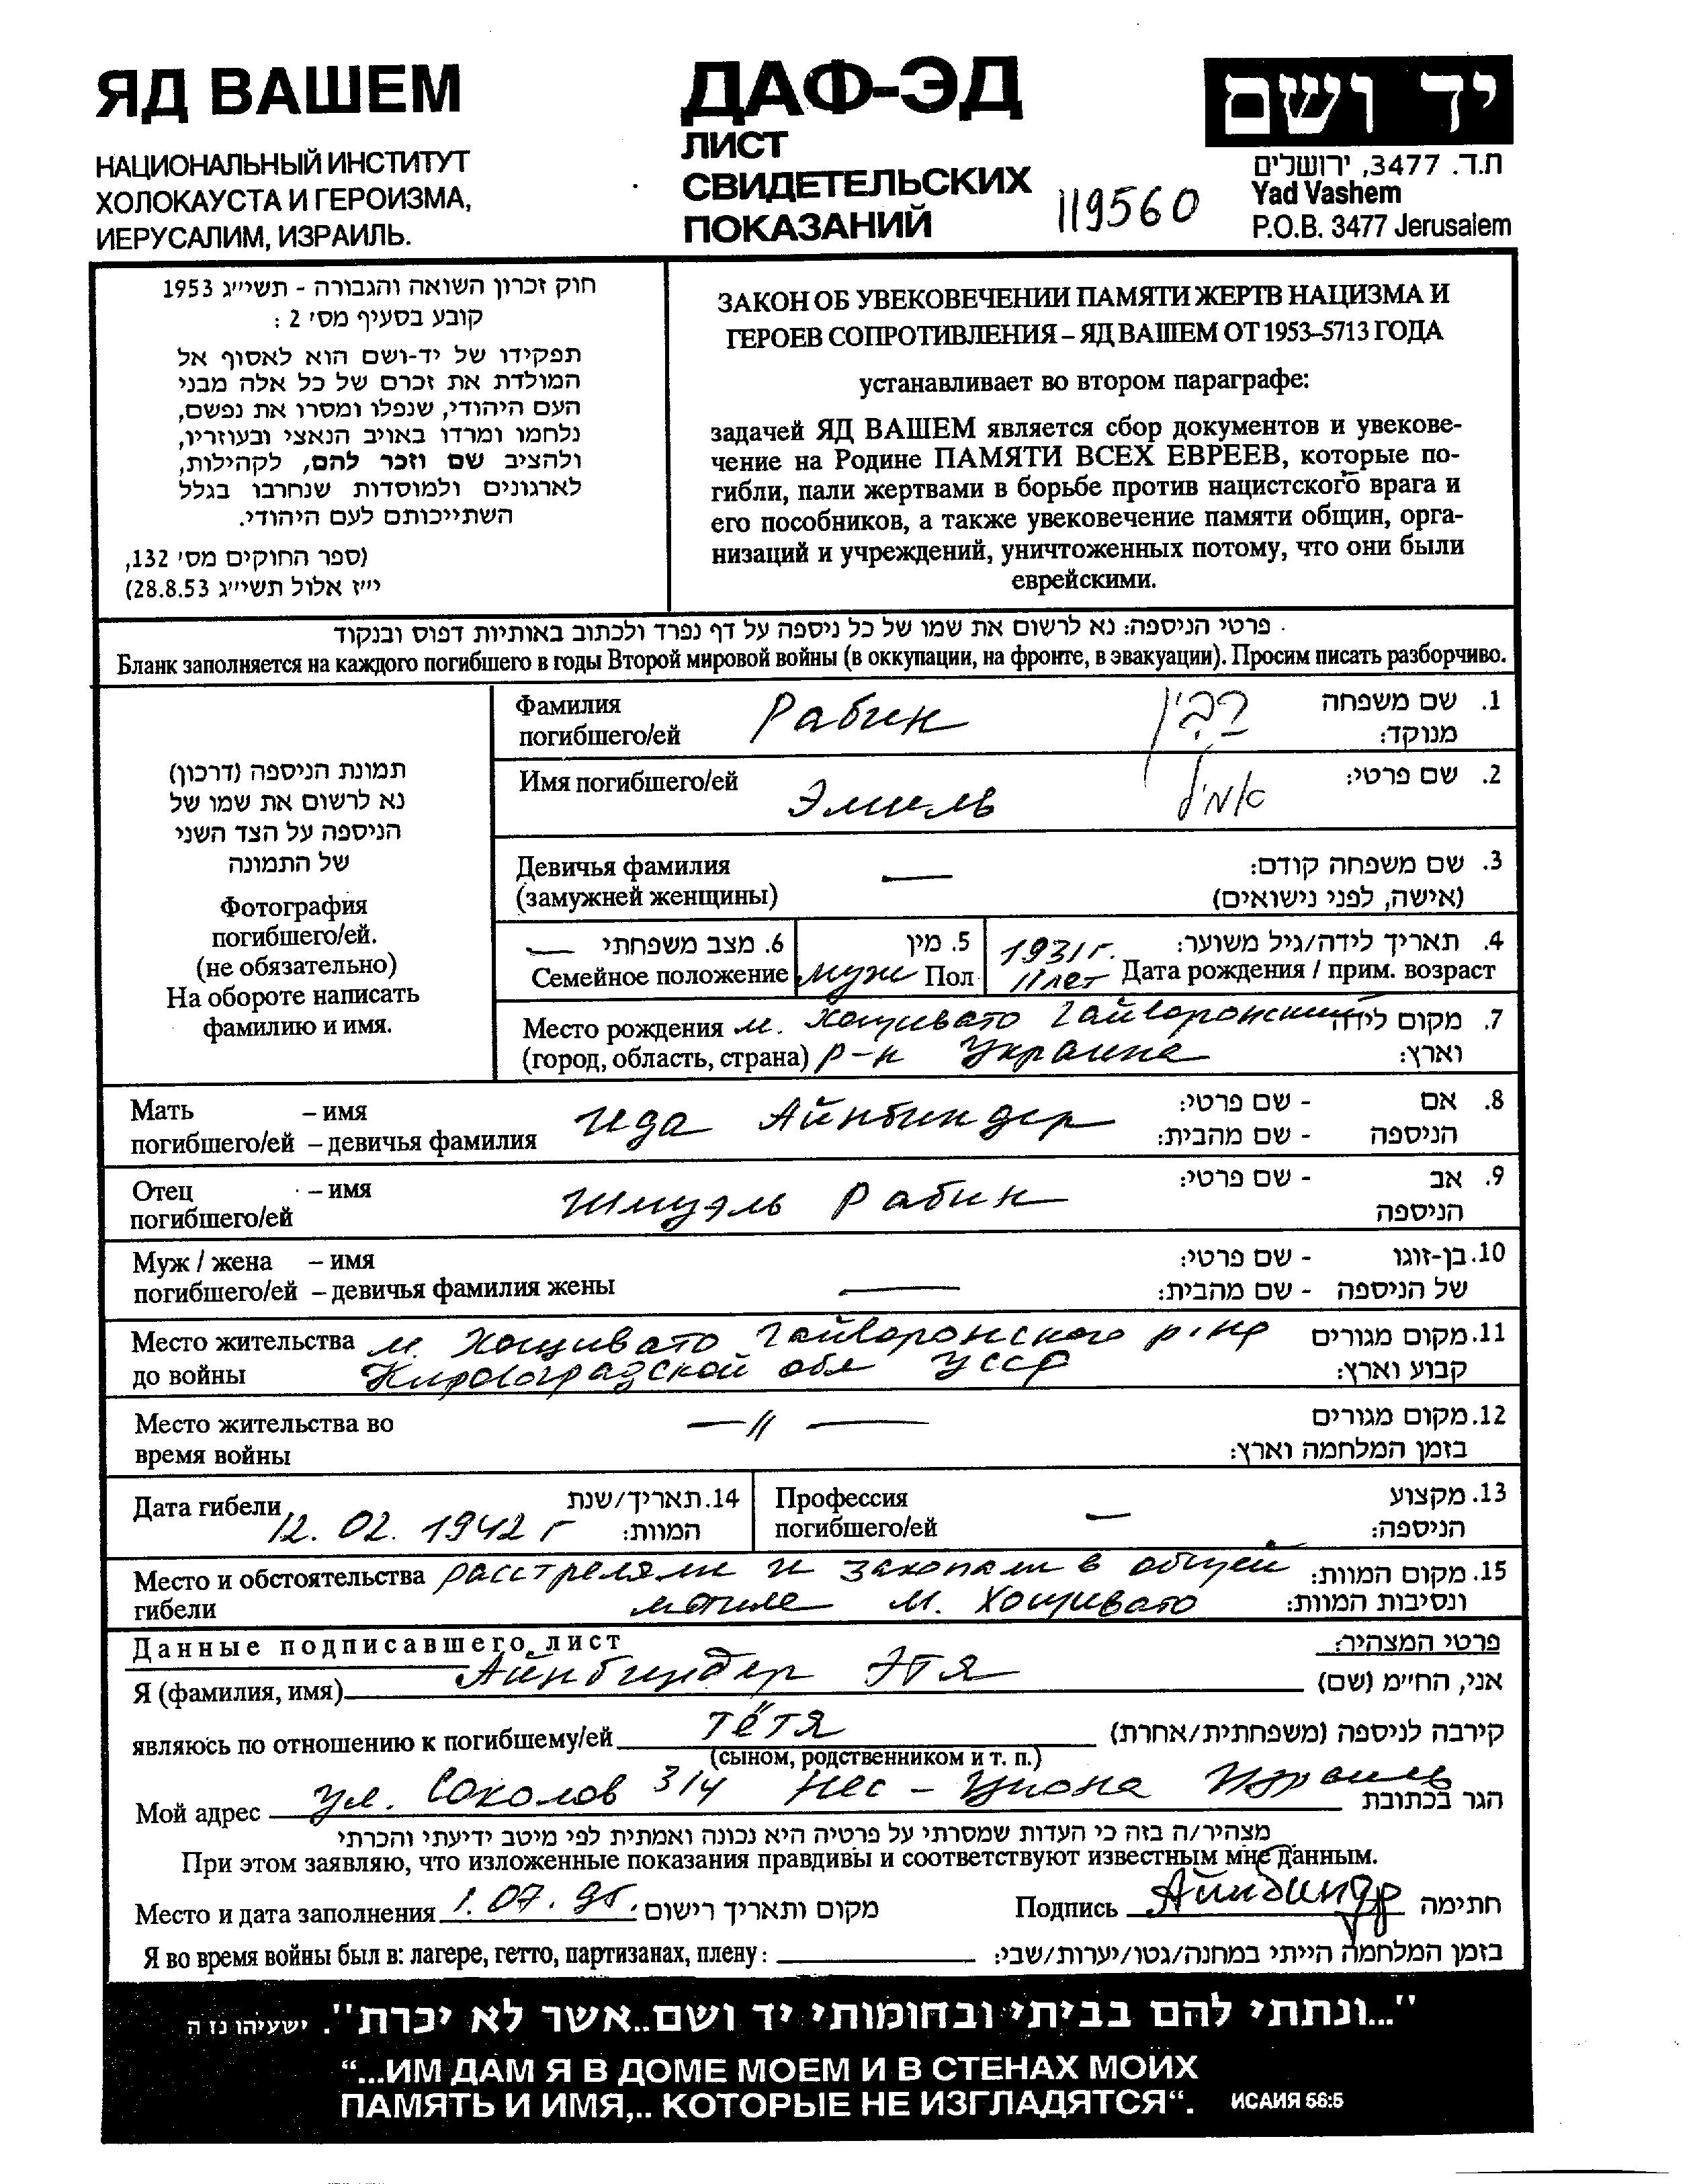 ЯД ВАШЕМ
НАЦИОНАЛЬНЫЙ ИНСТИТУТ
ХОЛОКАУСТА И ГЕРОИЗМА,
ИЕРУСАЛИМ, ИЗРАИЛЬ.
ДАФ-ЭД
ЛИСТ
СВИДЕТЕЛЬСКИХ
ПОКАЗАНИЙ
119560
יד ושם
ת.ד. 3477, ירושלים
Yad Vashem
P.O.B. 3477 Jerusalem
חוק זכרון השואה והגבורה - תשי״ג 1953
קובע בסעיף מס׳ 2 :
תפקידו של יד-ושם הוא לאסוף אל
המולדת את זכרם של כל אלה מבני
העם היהודי, שנפלו ומסרו את נפשם,
נלחמו ומרדו באויב הנאצי ובעוזריו,
ולהציב שם וזכר להם, לקהילות,
לארגונים ולמוסדות שנחרבו בגלל
השתייכותם לעם היהודי.
(ספר החוקים מס׳ 132,
י״ז אלול תשי״ג 28.8.53)
ЗАКОН ОБ УВЕКОВЕЧЕНИИ ПАМЯТИ ЖЕРТВ НАЦИЗМА И
ГЕРОЕВ СОПРОТИВЛЕНИЯ – ЯД ВАШЕМ ОТ 1953–5713 ГОДА
устанавливает во втором параграфе:
задачей ЯД ВАШЕМ является сбор документов и увекове-
чение на Родине ПАМЯТИ ВСЕХ ЕВРЕЕВ, которые по-
гибли, пали жертвами в борьбе против нацистского врага и
его пособников, а также увековечение памяти общин, орга-
низаций и учреждений, уничтоженных потому, что они были
еврейскими.
פרטי הניספה: נא לרשום את שמו של כל ניספה על דף נפרד ולכתוב באותיות דפוס ובנקוד
Бланк заполняется на каждого погибшего в годы Второй мировой войны (в оккупации, на фронте, в эвакуации). Просим писать разборчиво.
תמונת הניספה (דרכון)
נא לרשום את שמו של
הניספה על הצד השני
של התמונה
Фотография
погибшего/ей.
(не обязательно)
На обороте написать
фамилию и имя.
Фамилия Рабин רבין 1. שם משפחה
погибшего/ей מנוקד:
Имя погибшего/ей Эмиль אמיל 2. שם פרטי:
Девичья фамилия — 3. שם משפחה קודם:
(замужней женщины) (אישה, לפני נישואים)
— 6. מצב משפחתי 5. מין 1931г. 4. תאריך לידה/גיל משוער:
Семейное положение муж Пол 11 лет Дата рождения / прим. возраст
Место рождения м. Хощивато Гайворонский 7. מקום לידה
(город, область, страна) р-н Украина וארץ:
Мать – имя Ида Айнбиндер 8. אם - שם פרטי:
погибшего/ей – девичья фамилия הניספה - שם מהבית:
Отец – имя Шмуэль Рабин 9. אב - שם פרטי:
погибшего/ей הניספה
Муж / жена – имя 10. בן-זוגו - שם פרטי:
погибшего/ей – девичья фамилия жены — של הניספה - שם מהבית:
Место жительства м. Хощивато Гайворонского р-на 11. מקום מגורים
до войны Кировоградской обл УССР קבוע וארץ:
Место жительства во — // — 12. מקום מגורים
время войны בזמן המלחמה וארץ:
Дата гибели 12. 02. 1942 г 14. תאריך/שנת המוות:
Профессия — 13. מקצוע
погибшего/ей הניספה:
Место и обстоятельства расстреляли и закопали в общей 15. מקום המוות:
гибели могиле м. Хощивато ונסיבות המוות:
Данные подписавшего лист פרטי המצהיר:
Я (фамилия, имя) Айнбиндер Этя אני, הח״מ (שם)
являюсь по отношению к погибшему/ей тётя קירבה לניספה (משפחתית/אחרת)
(сыном, родственником и т. п.)
Мой адрес ул. Соколов 3/4 Нес - Циона Израиль הגר בכתובת
מצהיר/ה בזה כי העדות שמסרתי על פרטיה היא נכונה ואמתית לפי מיטב ידיעתי והכרתי.
При этом заявляю, что изложенные показания правдивы и соответствуют известным мне данным.
Место и дата заполнения 1. 07. 95. מקום ותאריך רישום Подпись Айнбиндер חתימה
Я во время войны был в: лагере, гетто, партизанах, плену: בזמן המלחמה הייתי במחנה/גטו/יערות/שבי:
"...ונתתי להם בביתי ובחומותי יד ושם..אשר לא יכרת". ישעיהו נו ה
“...ИМ ДАМ Я В ДОМЕ МОЕМ И В СТЕНАХ МОИХ
ПАМЯТЬ И ИМЯ,.. КОТОРЫЕ НЕ ИЗГЛАДЯТСЯ“. ИСАИЯ 56:5